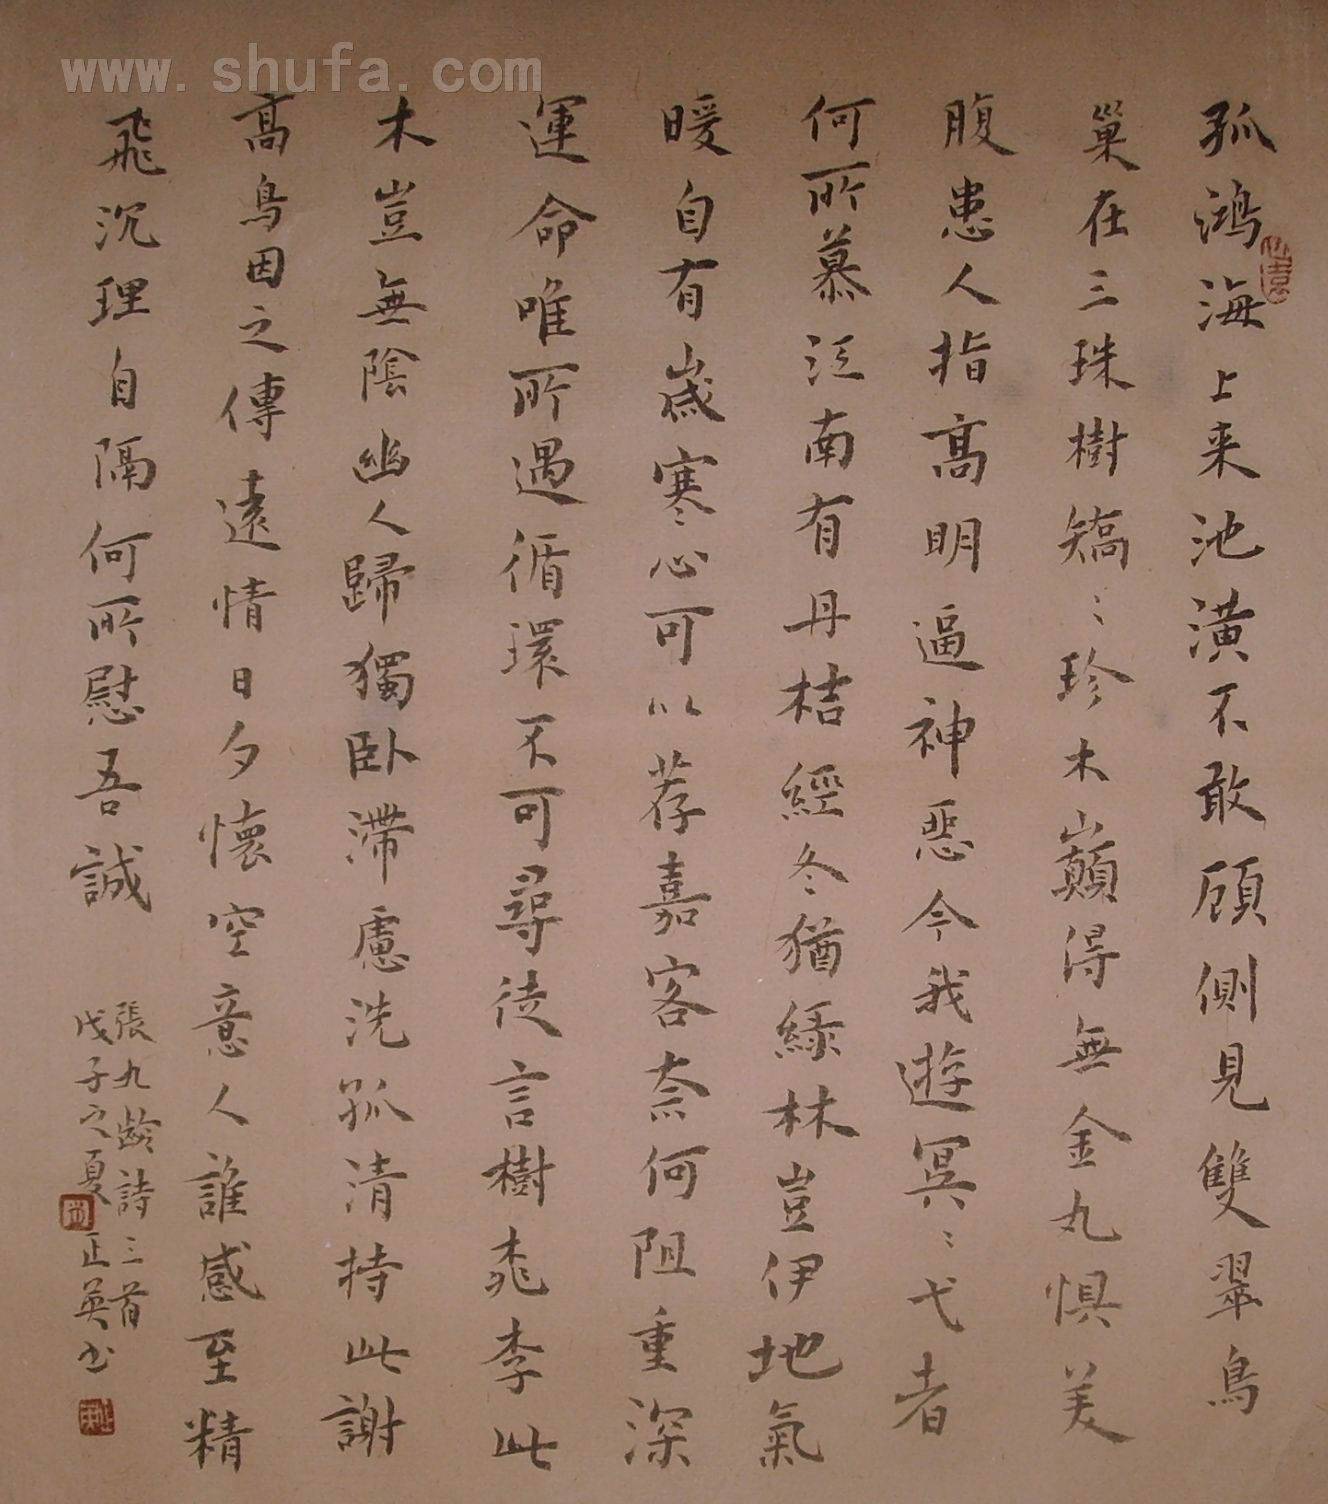 www.shufa.com
孤鴻海上来池潢不敢顧側見雙翠鳥
巢在三珠樹矯〻珍木巔得無金丸懼美
腹患人指高明逼神惡今我遊冥〻弋者
何所慕江南有丹桔經冬猶緑林豈伊地氣
暖自有歲寒心可以荐嘉客奈何阻重深
運命唯所遇循環不可尋徒言樹桃李此
木豈無陰幽人歸獨卧滯慮洗孤清持此謝
高鳥因之傳遠情日夕懷空意人誰感至精
飛沉理自隔何所慰吾誠
張九齡詩三首
戊子之夏正英书